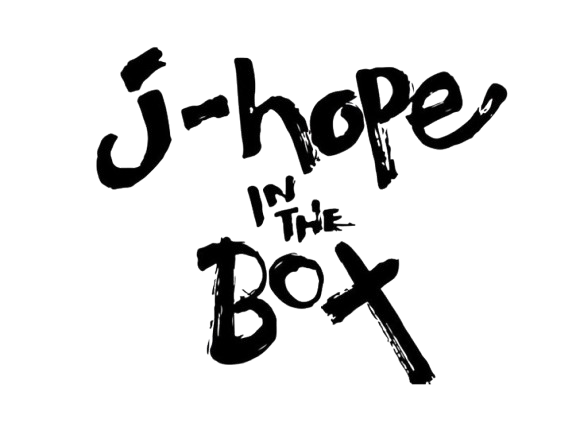 j-hope
IN
THE
BOX